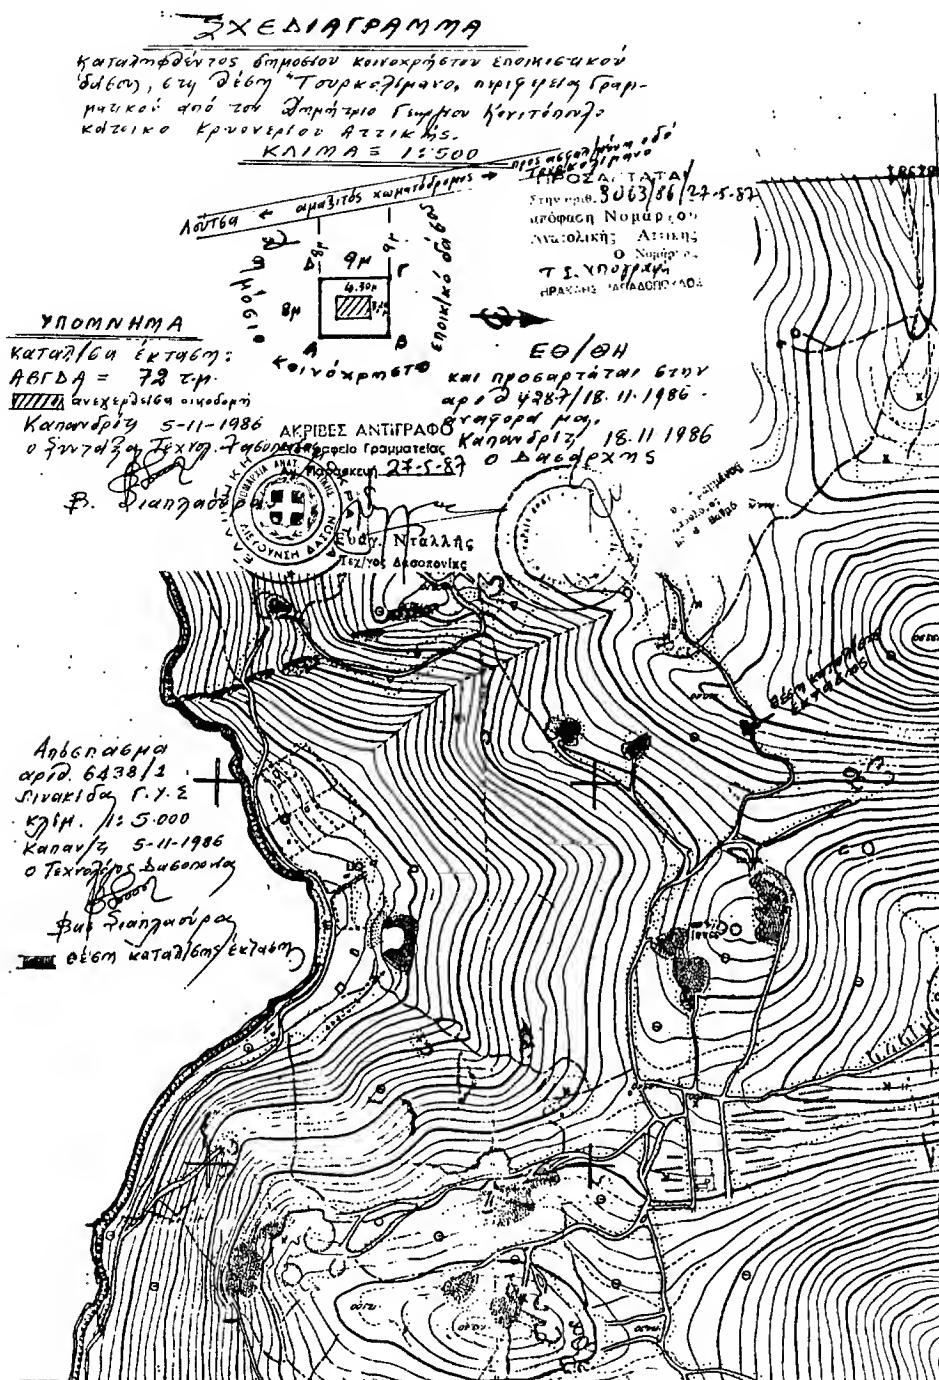 ΣΧΕΔΙΑΓΡΑΜΜΑ
Καταληφθέντος δημοσίου κοινοχρήστου εποικιστικού
δάσους, στη θέση "Τουρκολίμανο, περιφερείας Γραμ-
ματικού από τον Δημήτριο Γεωργίου Κονιτόπουλο
κάτοικο Κρυονερίου Αττικής.
ΚΛΙΜΑΞ 1:500
προς ασφαλ/μένη οδό
Τουρκολίμανο
Λούτσα ← αμαξιτός χωματόδρομος →
ΠΡΟΣΑΡΤΑΤΑΙ
Στην αριθ. 3063/86/27-5-87
απόφαση Νομάρχου
Ανατολικής Αττικής
Ο Νομάρχης
Τ.Σ. Υπογραφή
ΗΡΑΚΛΗΣ ΠΑΠΑΔΟΠΟΥΛΟΣ
8μ 9μ
Δ 9μ Γ
4.30μ
8μ
Α Β
Δημόσιο
κοινόχρηστο
εποικικό δάσος
ΥΠΟΜΝΗΜΑ
καταλ/σα έκταση:
ΑΒΓΔΑ = 72 τ.μ.
ανεγερθείσα οικοδομή
Καπανδρίτι 5-11-1986
ο Συντάξας Τεχνολ. Δασοπονίας
Β. Διαπλασύρας
ΕΘ/ΘΗ
και προσαρτάται στην
αριθ 4287/18.11.1986
αναφορά μας.
Καπανδρίτι 18.11 1986
Ο Δασάρχης
ΑΚΡΙΒΕΣ ΑΝΤΙΓΡΑΦΟ
Γραφείο Γραμματείας
Αγ. Παρασκευή 27-5-87
ΔΙΕΥΘΥΝΣΗ ΔΑΣΩΝ
Ευαγ. Νταλλής
Τεχ/γος Δασοπονίας
θέση καταλ/σης
εκτάσεως
Απόσπασμα
αριθ. 6438/1
Πινακίδας Γ.Υ.Σ
κλίμ. 1:5.000
Καπαν/τι 5-11-1986
Ο Τεχνολόγος Δασοπονίας
Βας Διαπλασύρας
θέση καταλ/σης έκτασης